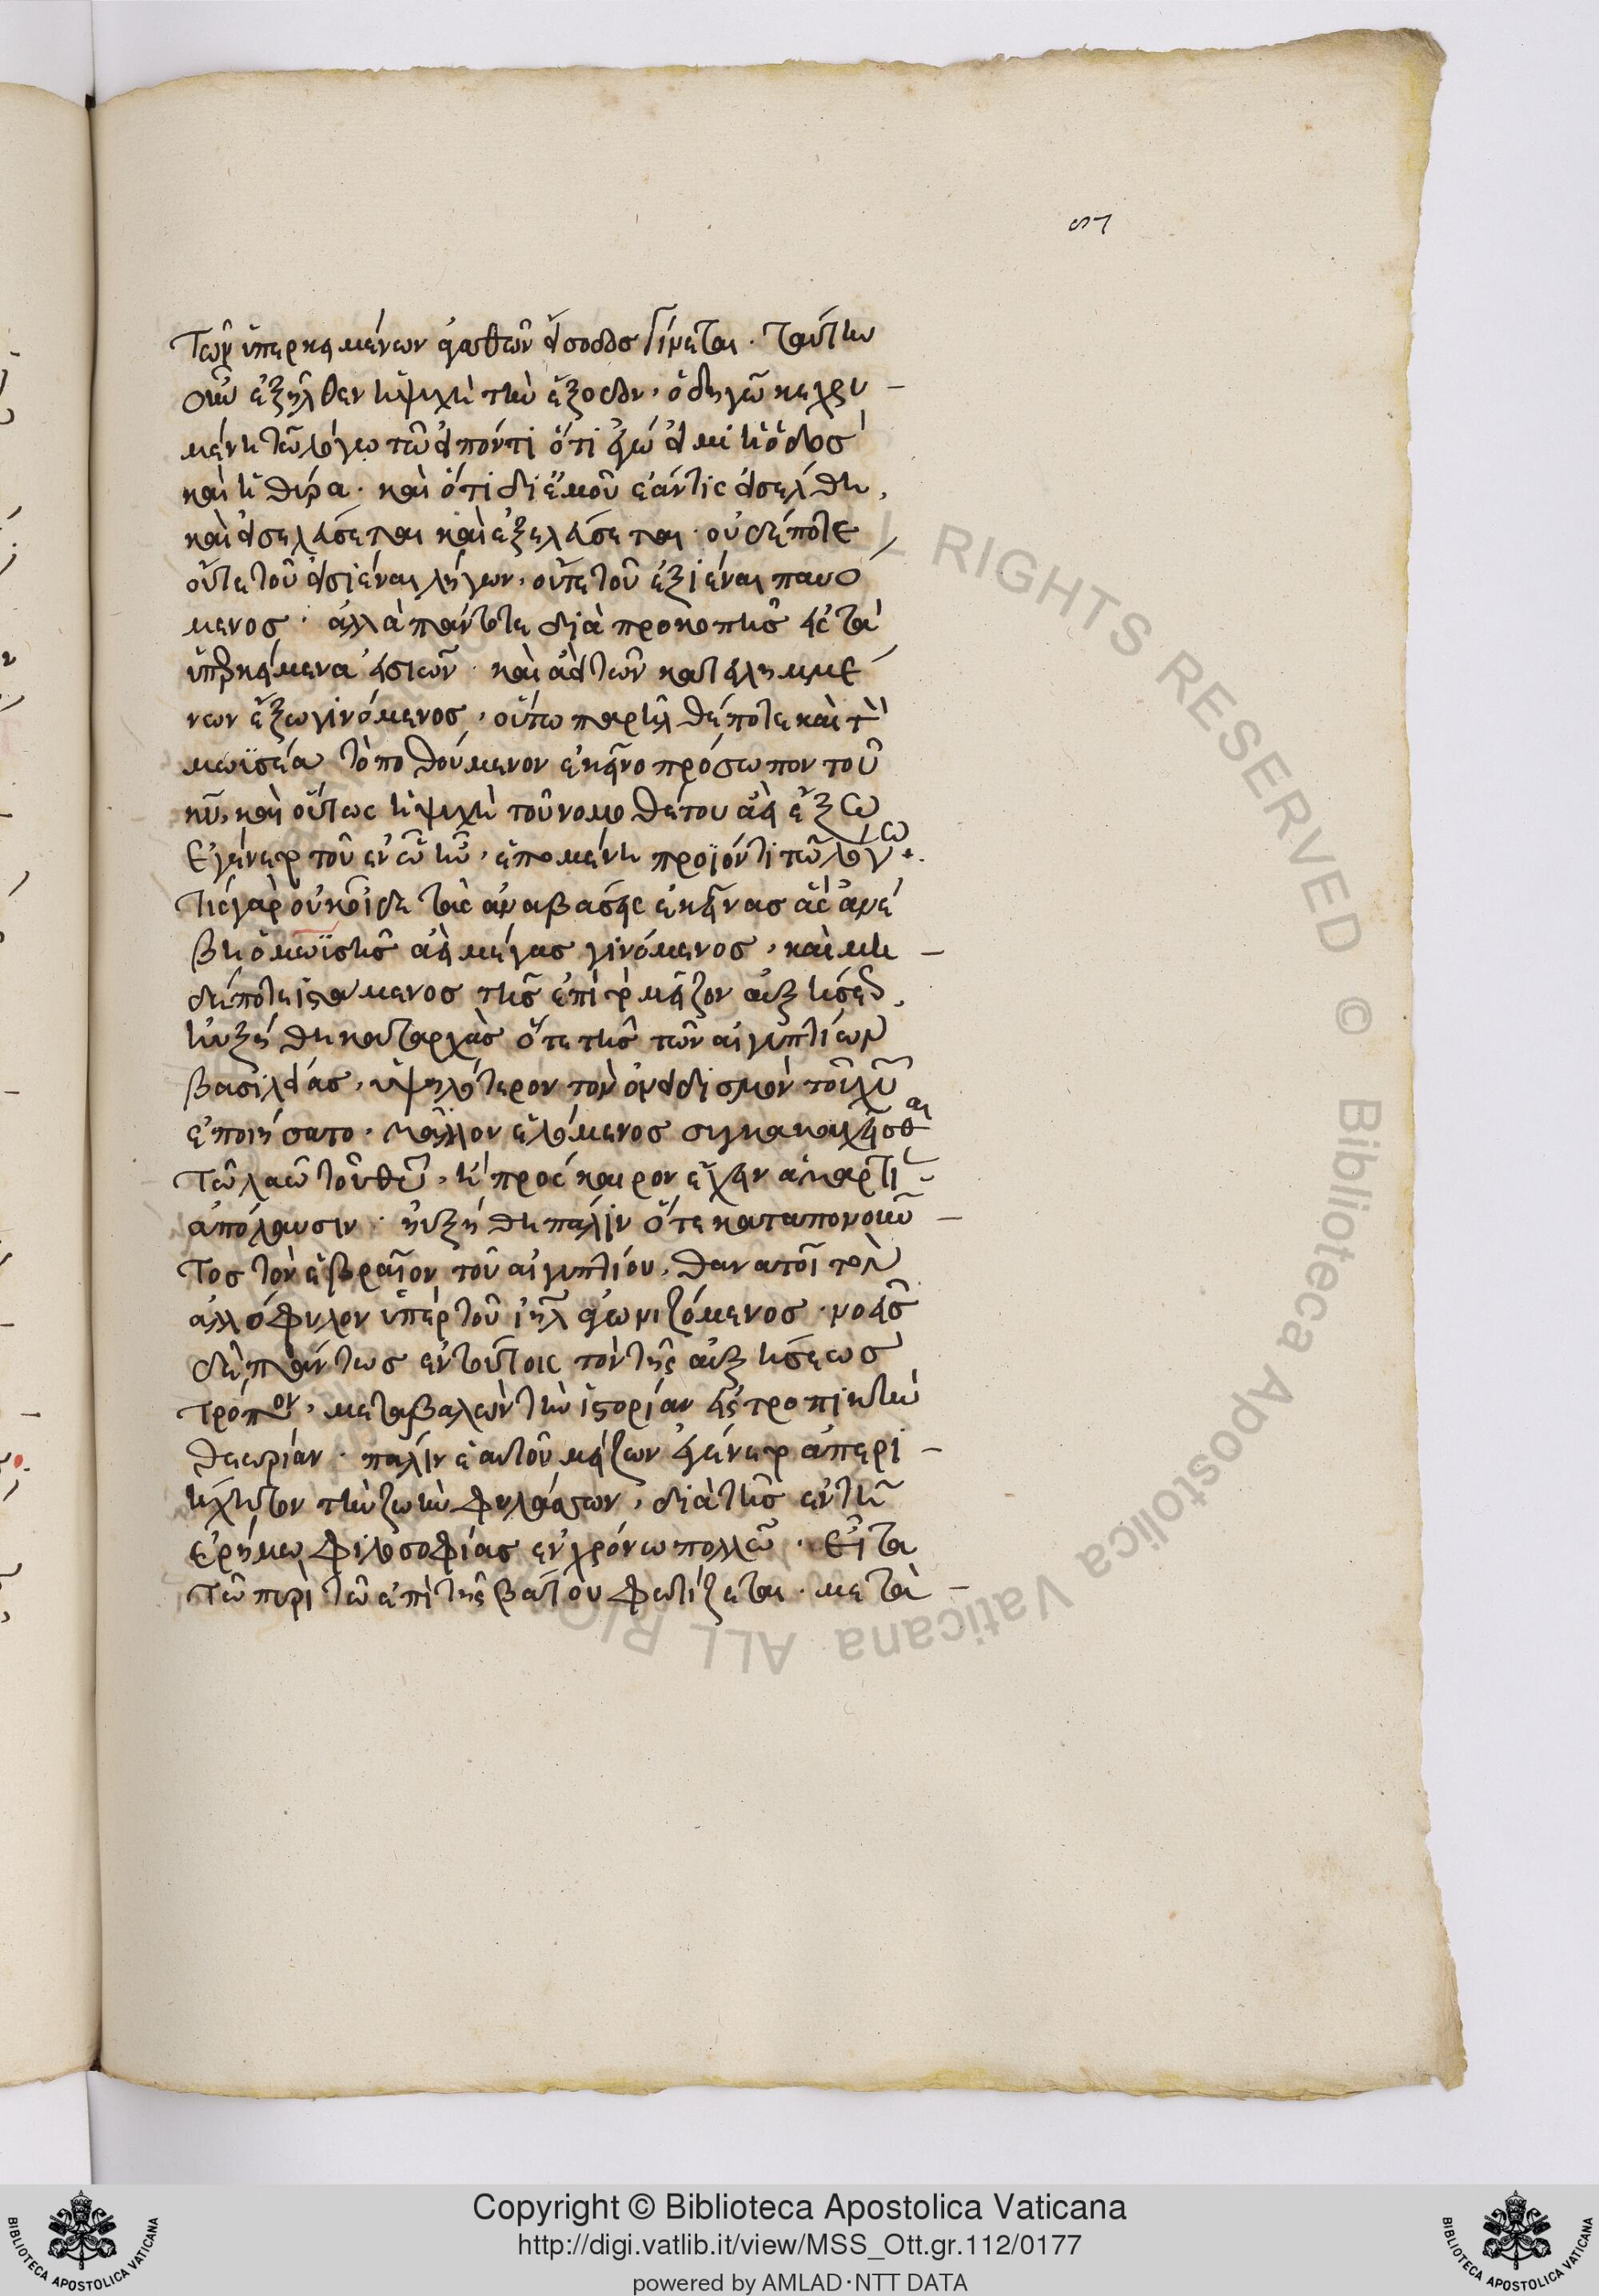 57
τῶν ὑπερκειμένων ἀγαθῶν εἴσοδος γίνεται· ταύτην
οὖν ἐξῆλθεν ἡ ψυχὴ τὴν ἔξοδον, ὁδηγῷ κεχρη-
μένη τῷ λόγῳ τῷ εἰπόντι ὅτι ἐγώ εἰμι ἡ ὁδὸς
καὶ ἡ θύρα· καὶ ὅτι δι' ἐμοῦ ἐάν τις εἰσέλθη,
καὶ εἰσελεύσεται καὶ ἐξελεύσεται· οὐδέποτε
οὔτε τοῦ εἰσιέναι λήγων, οὔτε τοῦ ἐξιέναι παυό
μενος· ἀλλὰ πάντοτε διὰ προκοπῆς εἰς τὰ
ὑπερκείμενα εἰσιὼν· καὶ ἀεὶ τῶν κατειλημμέ
νων ἔξω γινόμενος, οὕτω παρῆλθέ ποτε καὶ τὸν
μωϋσέα τὸ ποθούμενον ἐκεῖνο πρόσωπον τοῦ
κυ, καὶ οὕτως ἡ ψυχὴ τοῦ νομοθέτου ἀεὶ ἔξω
ἐγένετο τοῦ ἐν ᾧ ἦν, ἑπομένη προϊόντι τῷ λόγω·
τίς γὰρ οὐκ οἶδε τὰς ἀναβάσεις ἐκείνας ἃς ἀνέ
βη ὁ μωϋσῆς ἀεὶ μέγας γινόμενος, καὶ μη-
δέποτε ἱστάμενος τῆς ἐπὶ τὸ μεῖζον αὐξήσεως·
ηὐξήθη καταρχὰς ὅτε τῆς τῶν αἰγυπτίων
βασιλείας, ὑψηλότερον τὸν ὀνειδισμὸν τοῦ χυ
ἐποιήσατο· μᾶλλον ἑλόμενος συγκακουχεῖσθαι
τῷ λαῷ τοῦ θυ, ἢ πρόσκαιρον ἔχειν ἁμαρτίας
ἀπόλαυσιν· ηὐξήθη πάλιν ὅτε καταπονοῦν-
τος τὸν ἑβραῖον τοῦ αἰγυπτίου, θανατοῖ τὸν
ἀλλόφυλον ὑπὲρ τοῦ ιηλ ἀγωνιζόμενος· νοεῖς
δὲ πάντως ἐν τούτοις τὸν τῆς αὐξήσεως
τρόπον, μεταβαλὼν τὴν ἱστορίαν εἰς τροπικὴν
θεωρίαν· πάλιν ἑαυτοῦ μείζων ἐγένετο ἀπερι-
ήχητον τὴν ζωὴν φυλάσσων, διὰ τῆς ἐν τῇ
ἐρήμω φιλοσοφίας ἐν χρόνω πολλῷ· εἶτα
τῷ πυρὶ τῷ ἐπὶ τῆς βάτου φωτίζεται· μετὰ-
ALL RIGHTS RESERVED © Biblioteca Apostolica Vaticana ALL RIG
Copyright © Biblioteca Apostolica Vaticana
http://digi.vatlib.it/view/MSS_Ott.gr.112/0177
powered by AMLAD·NTT DATA
BIBLIOTECA APOSTOLICA VATICANA
BIBLIOTECA APOSTOLICA VATICANA